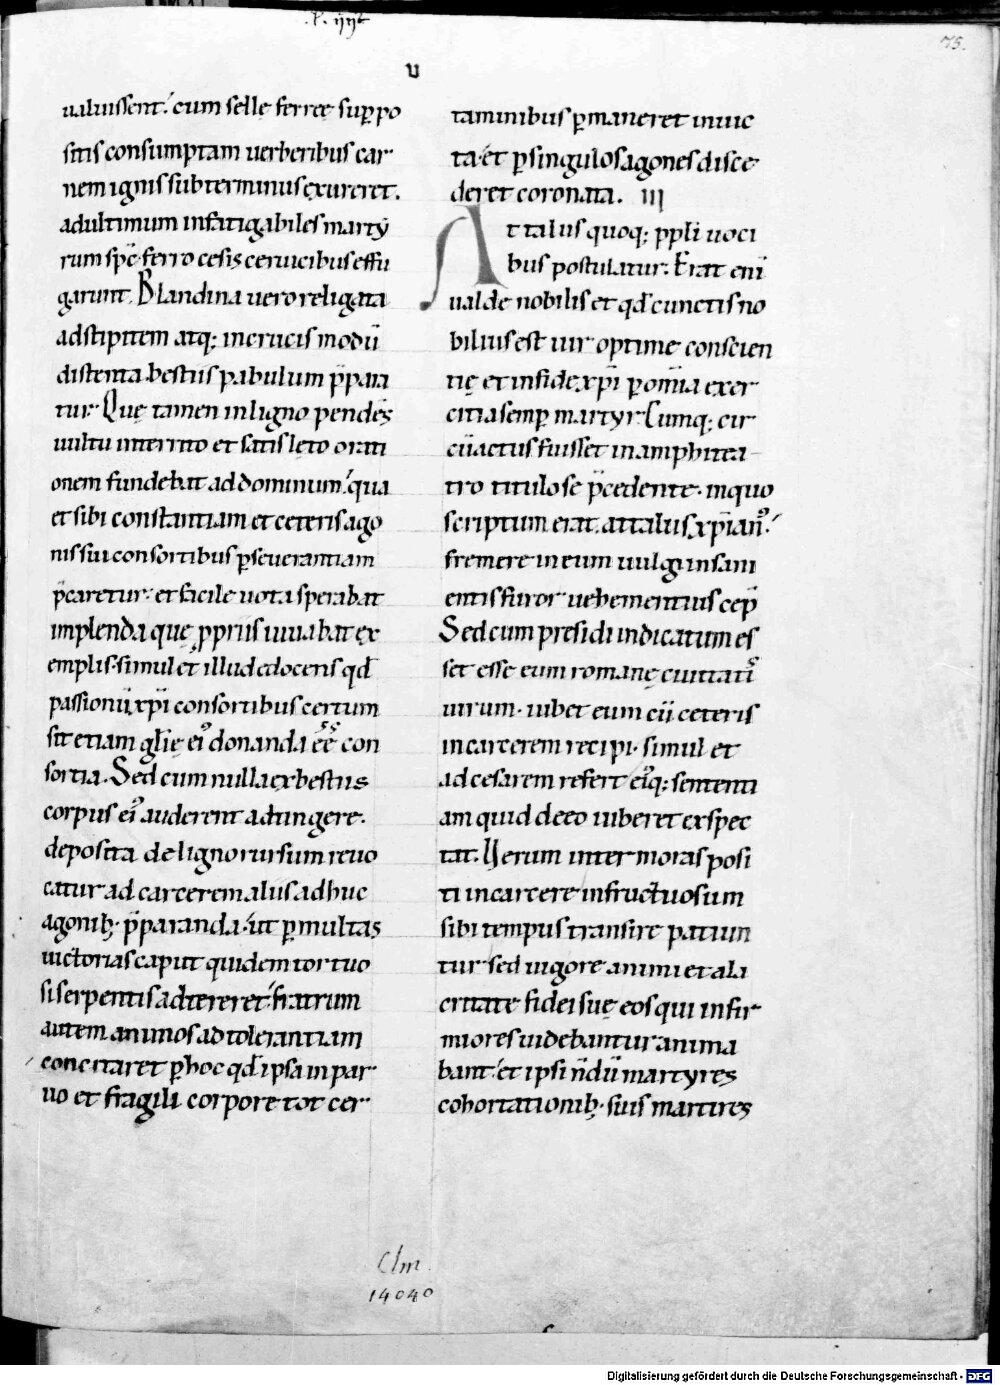 .l. iiii
75.
u
ualuissent.' cum sellę ferreę sup̱ po
sitis consumptam uerberibus car
nem ignis subterminus exureret.
adultimum infatigabiles martẏ
rum sp̄c ferro cesis ceruicibus effu
garunt. Blandina uero religata
ad stipitem atq; incrucis modū
distenta. bestiis pabulum p̄para
tur. Quę tamen inligno pendēs
uultu interrito et satis lęto orati
onem fundebat ad dominum.' qua
et sibi constantiam et ceteris ago
nis sui consortibus p̱seuerantiam
p̄caretur. et facile uota sperabat
implenda quę p̱priis iuuabat ex
emplis. simul et illud edocens qđ
passionū xp̄i consortibus certum
sit etiam glīę ei᾽ donanda eē̄ con
sortia. Sed cum nulla ex bestiis
corpus ei᾽ auderent adtingere.
deposita de ligno rursum reuo
catur ad carcerem alus adhuc
agonib; p̄paranda.' ut p̱ multas
uictorias caput quidem tortuo
si serpentis adtereret.' fratrum
autem animos ad tolerantiam
concitaret p̱ hoc qđ ipsa in par
uo et fragili corpore tot cer
taminibus p̱maneret inuic
ta. et p̱ singulos agones disce
deret coronata. III
Attalus quoq; pp̄li uoci
bus postulatur. Erat enī
ualde nobilis et qđ cunctis no
bilius est uir optime conscien
tię et infide xp̄i p̱ om̄ia exer
citia semp̱ martyr. Cumq; cir
cūactus fuisset in amphitea
tro titulo se p̄cedente. inquo
scriptum erat. attalus xp̄ian᾽.'
fremere in eum uulgi insani
entis furor uehementius cep̄
Sed cum presidi indicatum es
set esse eum romanę ciuitatis
uirum. iubet eum cū ceteris
in carcerem recipi. simul et
ad cesarem refert ei᾽q; sententi
am quid deeo iuberet exspec
tat. Uerum inter moras posi
ti in carcere infructuosum
sibi tempus transire patiun
tur sed uigore animi et ala
critate fidei suę eos qui infir
miores uidebantur anima
bant. et ipsi n̄dū martyres
cohortationib; suis martires
Clm
14040
Digitalisierung gefördert durch die Deutsche Forschungsgemeinschaft - DFG